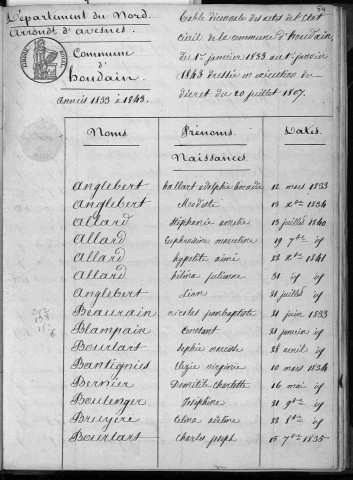 54
Département du Nord
Arrondt d'avesnes.
Commune
d'
houdain
années 1833 à 1843.
Table décennale des actes de l'état
civil de la commune d'houdain
du 1er janvier 1833 au 1er janvier
1843 dressée en exécution du
décret du 20 juillet 1807.
Noms. Prénoms. Dates.
Naissances.
Anglebert hallart adolphe 12 mars 1833
Anglebert Modeste 13 Xbre 1834
Allard Stéphanie amélie 13 juillet 1840
Allard Euphrosine marceline 19 7bre id
Allard hypolite aimé 22 Xbre 1841
Allard julienne 31 id id
Anglebert Léon 21 juillet id
Beaurain nicolas jean baptiste 21 juin 1833
Blampain Constant 21 janvier id
Bourlart Sophie narcisse 28 avril id
Bantignies Elizée virginie 10 mars 1834
Bernier Domitile Charlotte 16 mai id
Boulenger Joséphine 21 9bre id
Bruyère Célina 22 8bre id
Bourlart Charles joseph 15 7bre 1835